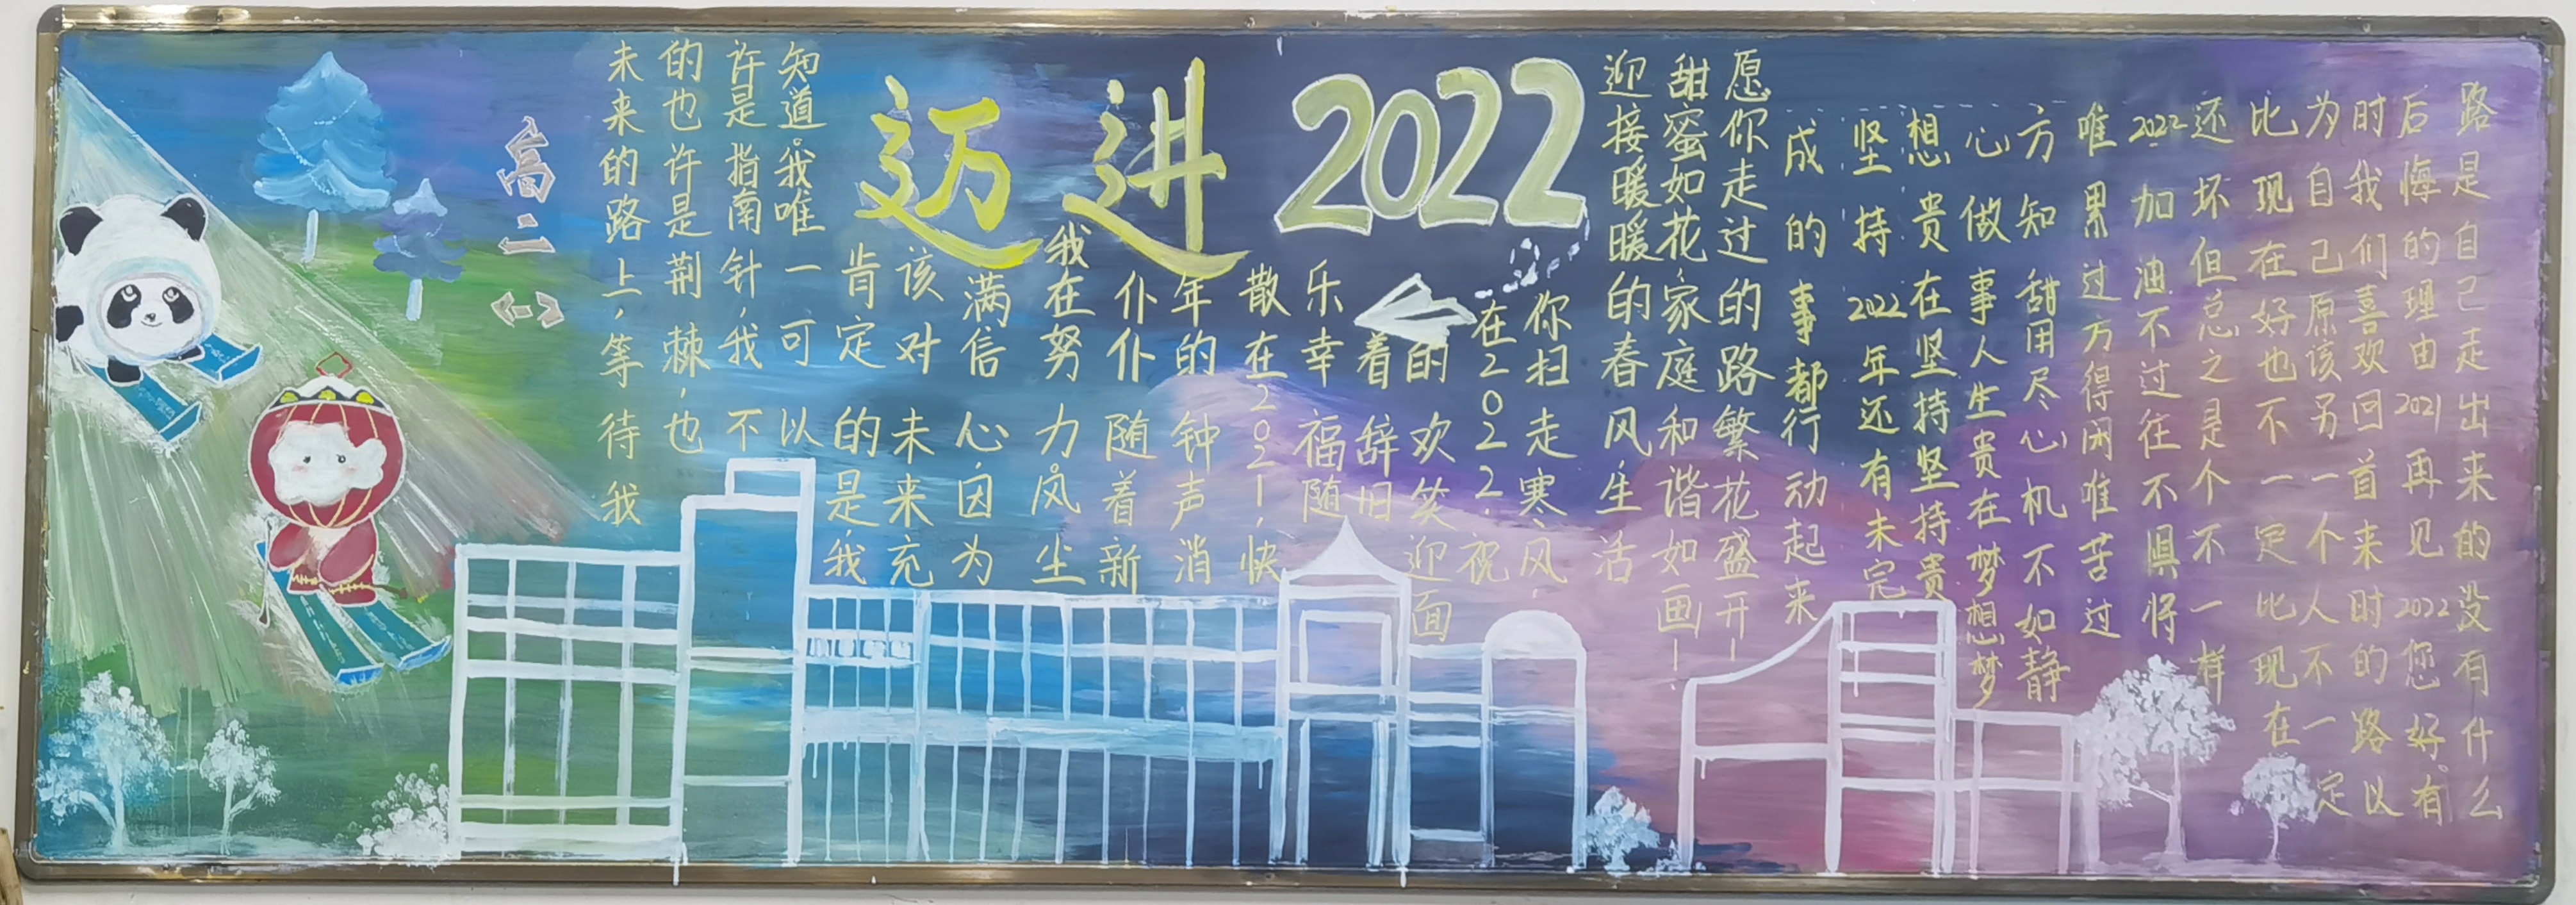 迈进2022
高二
<一>
未来的路上，等待我
的也许是荆棘，也
许是指南针，我不
知道。我唯一可以
肯定的是，我
该对未来充
满信心，因为
我在努力。风尘
仆仆随着新
年的钟声消
散在2021，快
乐幸福随
着辞旧
的欢笑迎面
在2022，祝
你扫走寒风，
迎接暖暖的春风生活
甜蜜如花，家庭和谐如画！
愿你走过的路繁花盛开！
路是自己走出来的没有什么
后悔的理由2021再见2022您好。有
时我们喜欢回首来时的路以
为自己原该另一个人不一定
比现在好也不一定比现在
还坏但总之是个不一样
2022加油不过往不惧将
唯累过方得闲唯苦过
方知甜用尽心机不如静
心做事人生贵在梦想梦
想贵在坚持坚持贵
坚持2022年还有未完
成的事都行动起来